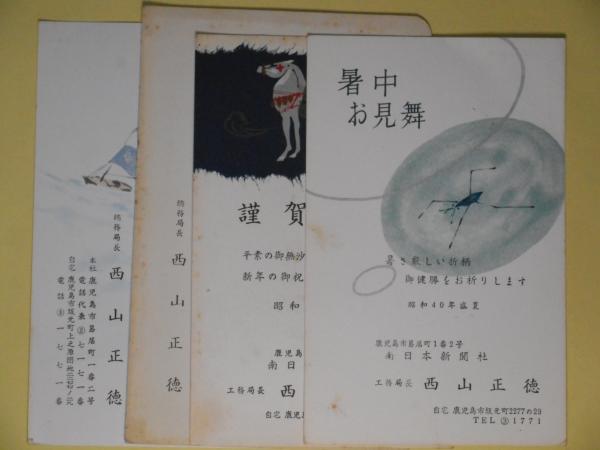 暑中
お見舞
暑さ厳しい折柄
御健勝をお祈りします
昭和40年盛夏
鹿児島市易居町1番2号
南日本新聞社
工務局長 西山正徳
自宅 鹿児島市坂元町2277の29
TEL ③1771
謹賀
平素の御無沙
新年の御祝
昭和
鹿児島
南日
工務局長 西
自宅 鹿児島
総務局長
西山正徳
総務局長
西山正徳
本社 鹿児島市易居町一番二号
自宅 鹿児島市坂元町上之原団地
電話③一七七一番